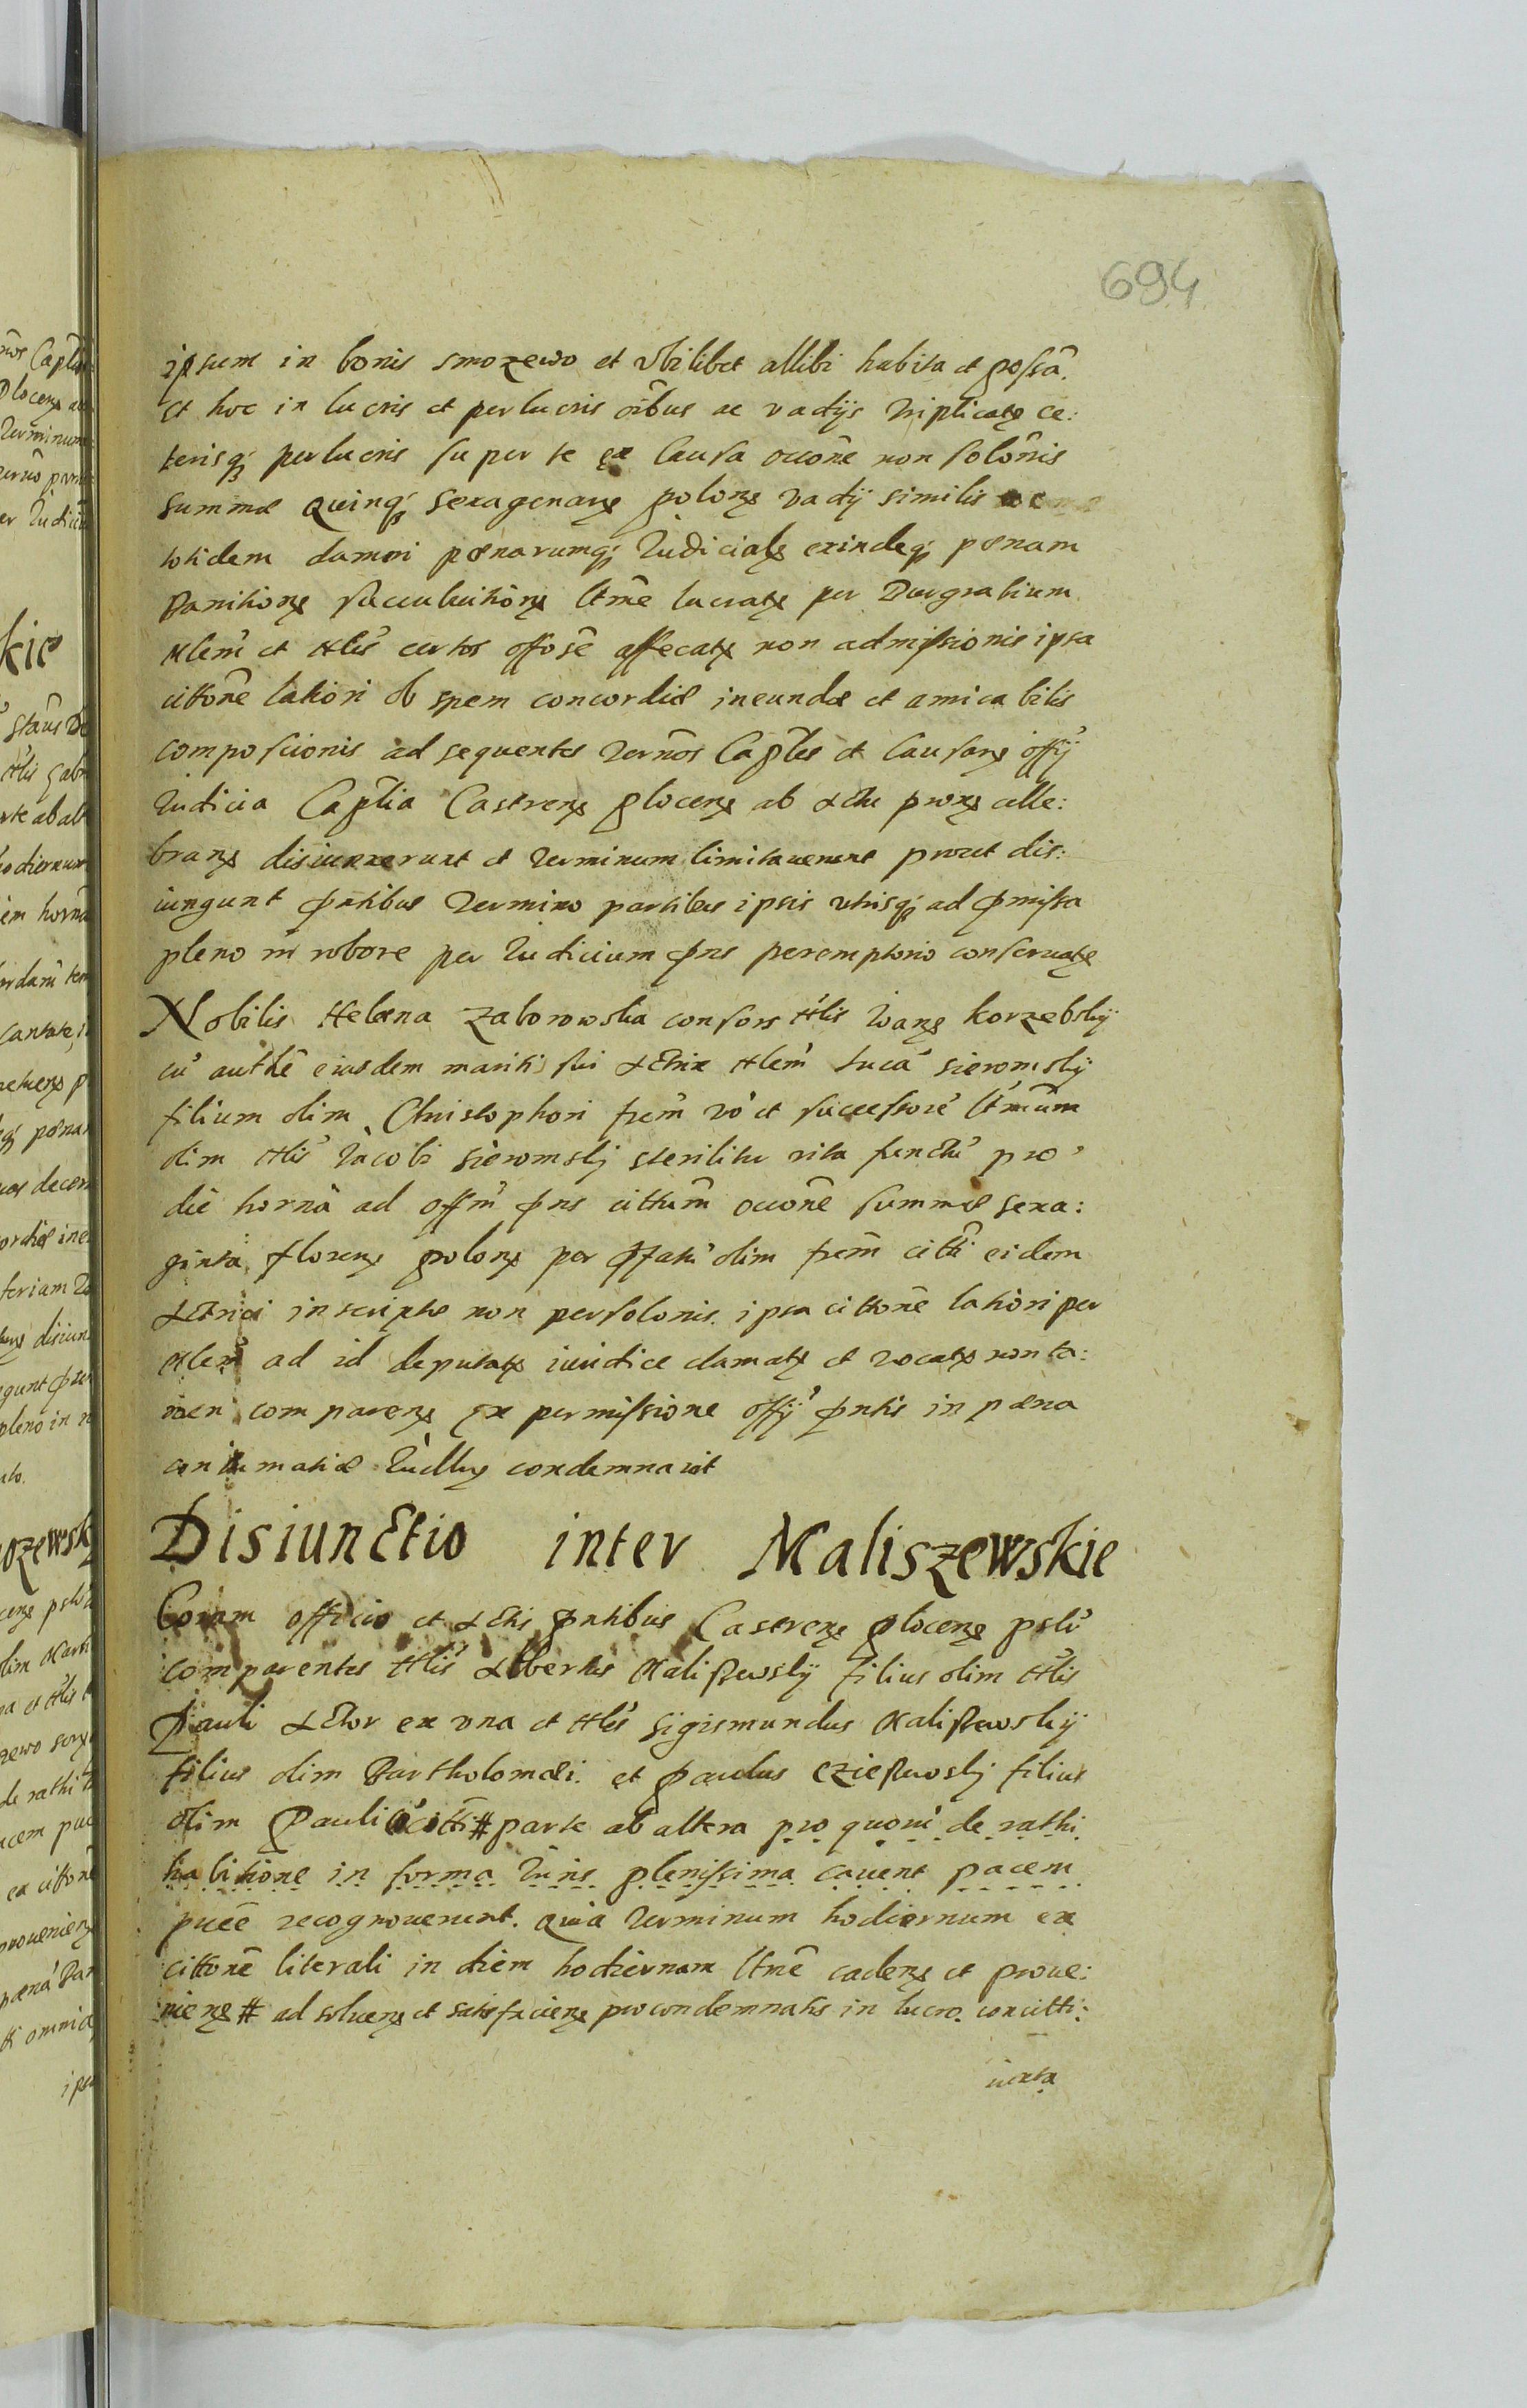 694
ipsum in bonis smozewo et vbilibet allibi habita et possā.
et hoc in lucris et perlucris oībus ac vadijs triplicatę ce:
terisq; perlucris super te ex causa occōne non solōnis
summæ Quinq; sexagenarę polonę vadij similis
totidem damni pœnarumq; Iudicialę exindeq; pœnam
Banitionę succubitionę ltme lucratę per
et Nlis non admissionis ipsa
cittōne latiōri ob spem concordiæ ineundæ et amicabilis
composicionis ad sequentes Termōs Capłes et Causarę offij
Iudicia Capłia Castrenę plocenę ab Actu prōxę celle:
branę disiunxerunt et Terminum limitauerunt prout dis:
iungunt pntibus Termino partibus ipsis vtrisq; ad pmissa
pleno in robore per Iudicium pns peremptorio conseruatę
Nobilis Helæna Zaborowska consors Nlis Ioanę Korzebskÿ
cū authē eiusdem mariti sui Actrix Nlem Lucā sieromskÿ
filium olim Christophori frem vō et successorē ltmum
olim Nlis Iacobi sieromskj steriliter vita functū pro
die hornā ad offm pns cittum occōne summæ sexa:
ginta florenę polonę per pfatū olim frem citti eidem
Actrici inscriptę non persolonis. ipsa cittōne latiōri per
Nlem ad id deputatę iuridice clamatę et vocatę non ta:
men comparenę ex permissione offij pntis in pæna
contumatiæ condemnauit
Disiunctio inter Maliszewskie
Coram officio et Actis pntibus Castrenę plocenę
comparentes Nlis Albertus Maliszewskÿ filius olim Nlis
Pauli Actor ex vna et Nlis Sigismundus Maliszewskÿ
filius olim Bartholomæi. et Paulus filius
olim Pauli citti # parte ab altera pro quorū de rathi
habitione in forma Iuris plenissima cauent pacem
pucē recognouerunt. Quia Terminum hodiernum ex
cittōne literali in diem hodiernam ltme cadenę et proue:
nienę # ad soluenę et satisfacienę procondemnatis in lucro. concitti:
iuxta